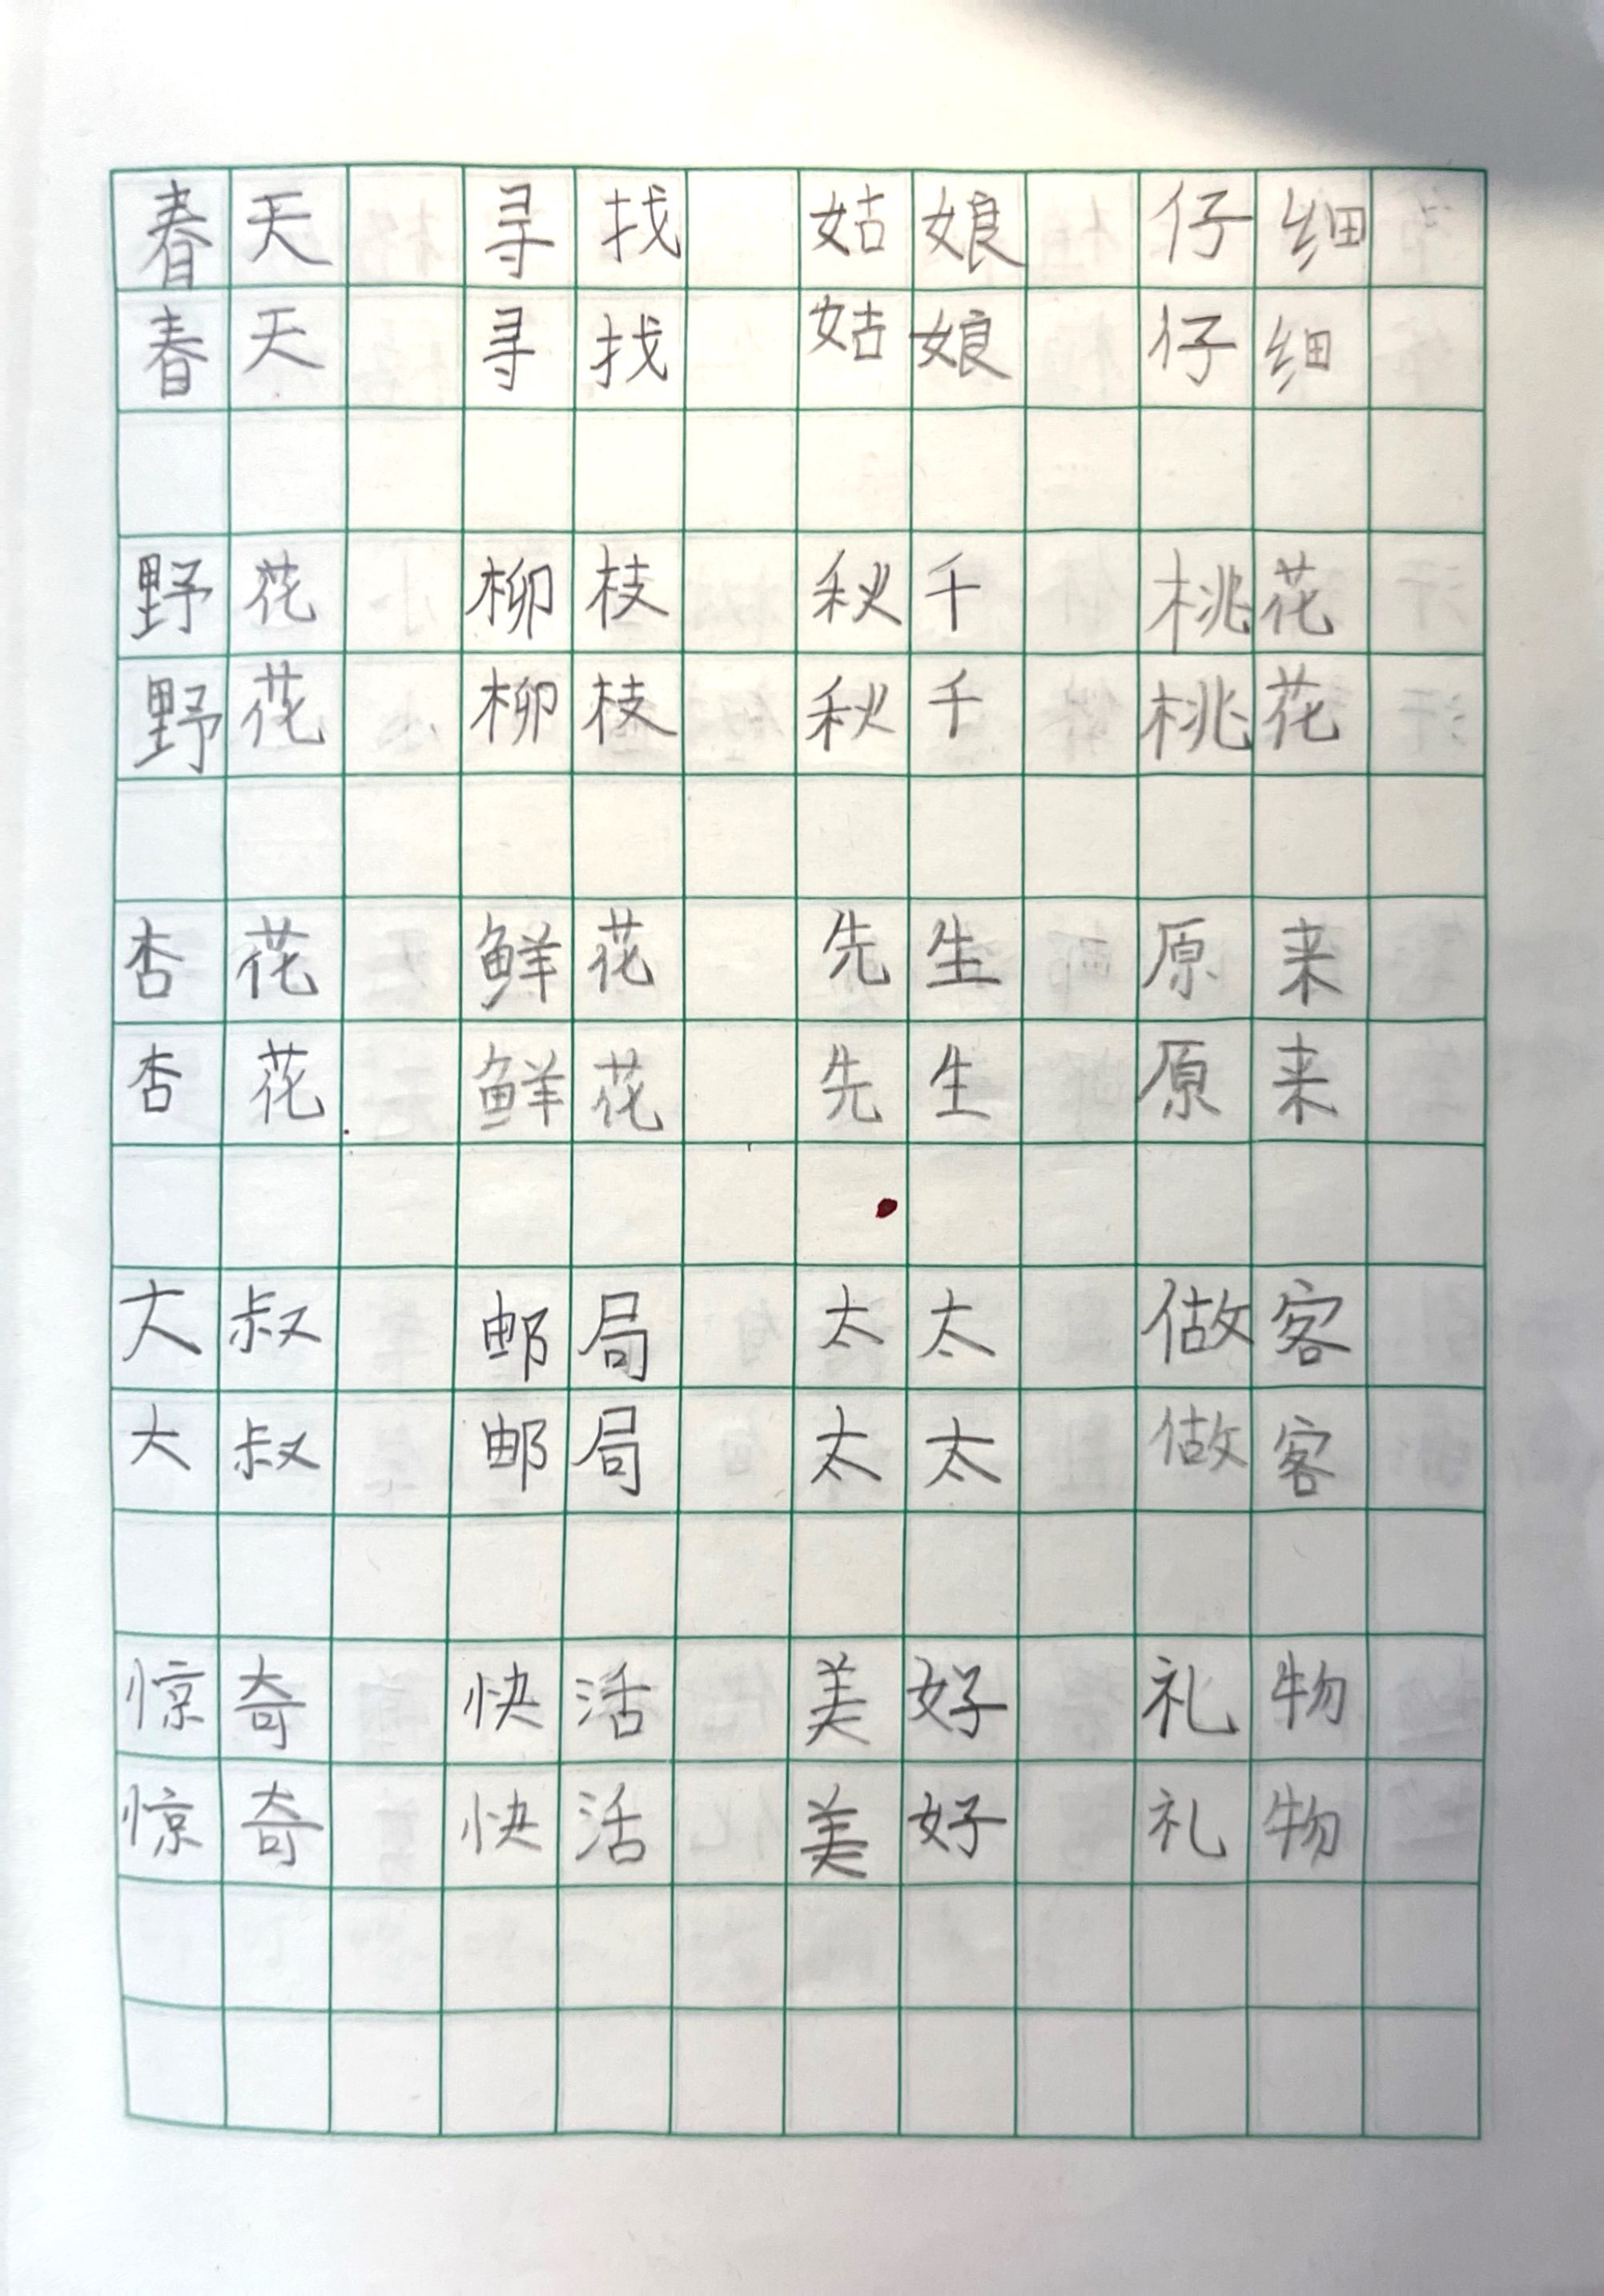 春天 寻找 姑娘 仔细
春天 寻找 姑娘 仔细
野花 柳枝 秋千 桃花
野花 柳枝 秋千 桃花
杏花 鲜花 先生 原来
杏花 鲜花 先生 原来
大叔 邮局 太太 做客
大叔 邮局 太太 做客
惊奇 快活 美好 礼物
惊奇 快活 美好 礼物